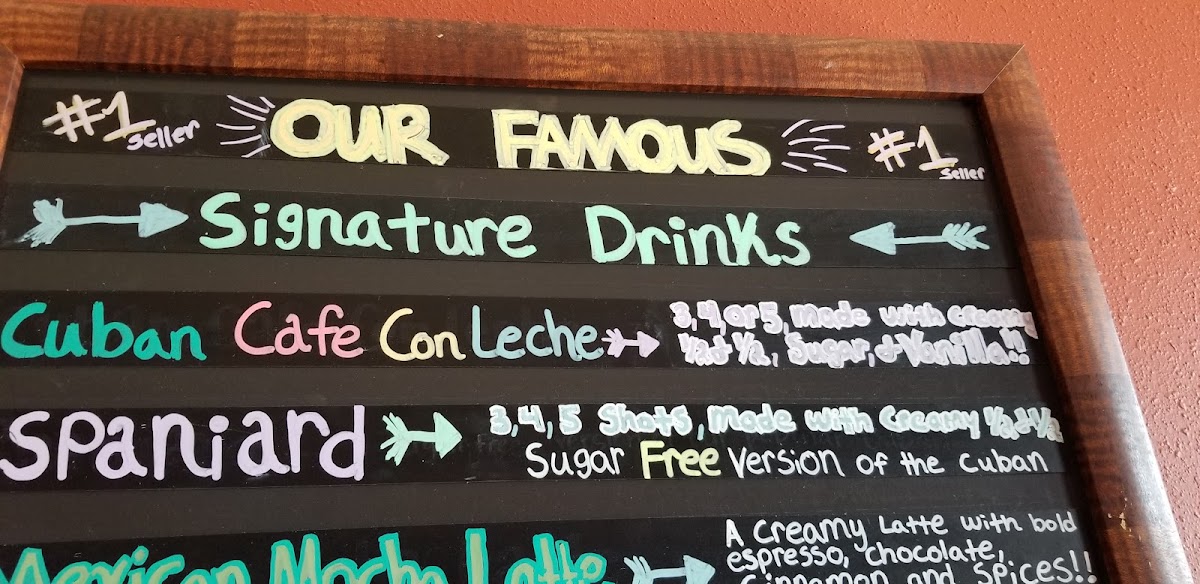 #1 seller OUR FAMOUS #1 seller
Signature Drinks
Cuban Cafe Con Leche 3, 4, or 5, Made with creamy
1/2 & 1/2, Sugar, & Vanilla!!
Spaniard 3, 4, 5 Shots, Made with Creamy 1/2 & 1/2
Sugar Free Version of the Cuban
Mexican Mocha Latte A Creamy Latte with bold
espresso, chocolate,
cinnamon and spices!!